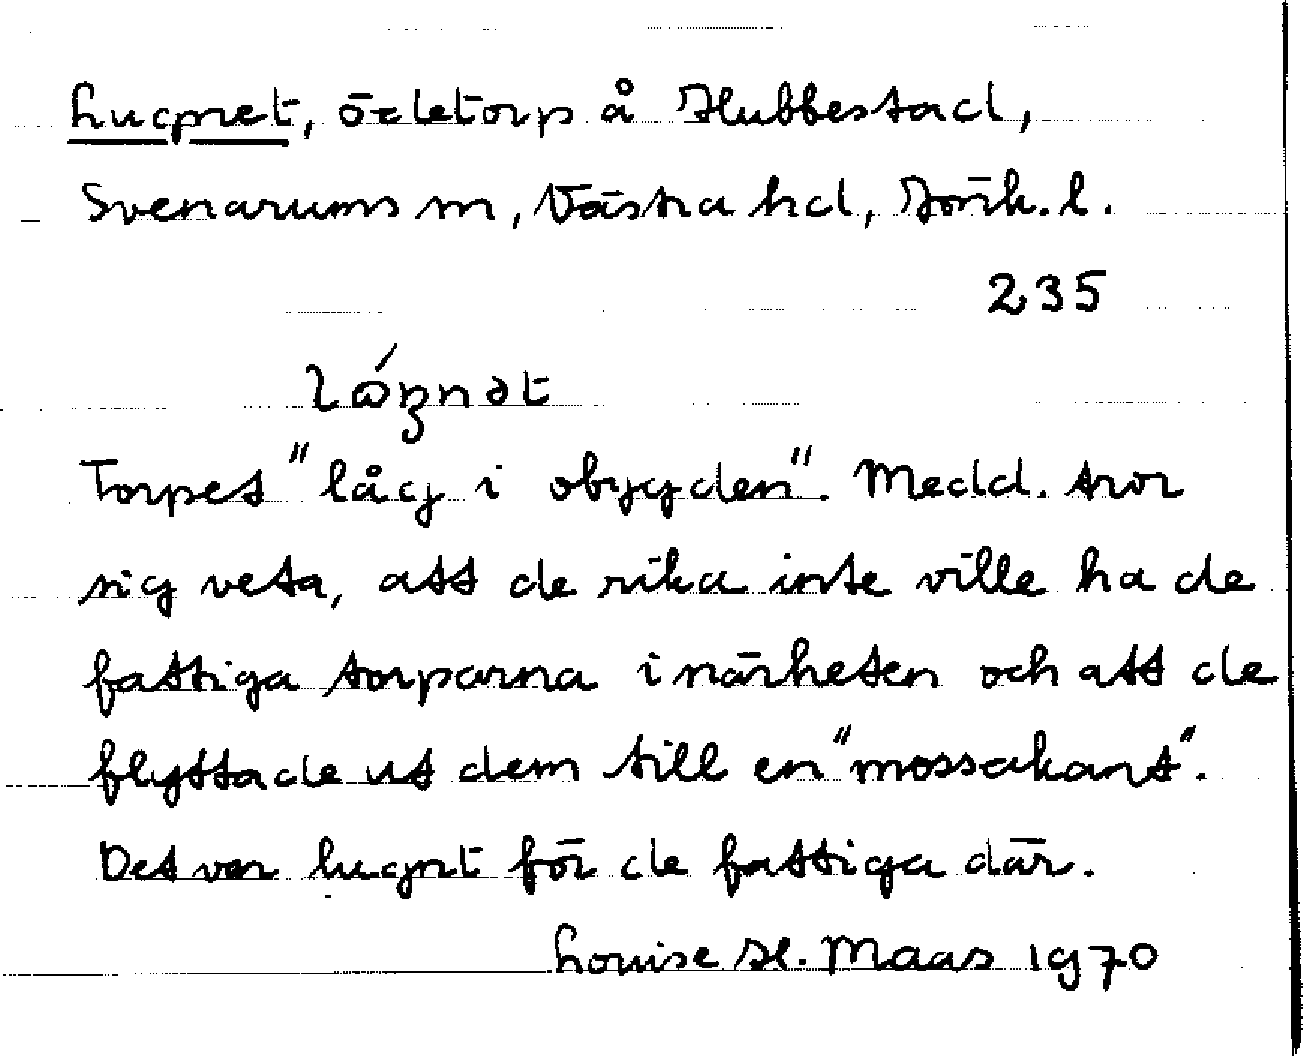 Lugnet, ödetorp å Hubbestad,
Svenarums sn, Västra hd, Jönk. l.
235
lǿgnət
Torpet "låg i obygden". Medd. tror
sig veta, att de rika inte ville ha de
fattiga torparna i närheten och att de
flyttade ut dem till en "mossakant".
Det var lugnt för de fattiga där.
Louise H. Maas 1970